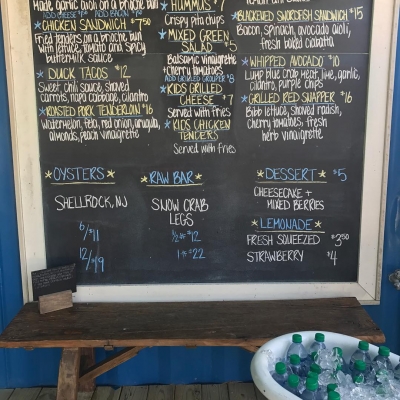 Made garlic aioli on a brioche bun
ADD CHEESE
CHICKEN SANDWICH $7.50
Fried tenders on a brioche bun
with lettuce, tomato and spicy
buttermilk sauce
DUCK TACOS $12
Sweet chili sauce, shaved
carrots, napa cabbage, cilantro
ROASTED PORK TENDERLOIN $16
Watermelon, feta, red onion, arugula,
almonds, peach vinaigrette
HUMMUS $7
Crispy pita chips
MIXED GREEN
SALAD $5
Balsamic vinaigrette
+ cherry tomatoes
ADD GRILLED GROUPER $8
KIDS GRILLED
CHEESE $7
Served with fries
KIDS CHICKEN
TENDERS
Served with fries
BLACKENED SWORDFISH SANDWICH $15
Bacon, spinach, avocado aioli,
fresh baked ciabatta
WHIPPED AVOCADO $10
Lump blue crab meat, lime, garlic,
cilantro, purple chips
GRILLED RED SNAPPER $16
Bibb lettuce, shaved radish,
cherry tomatoes, fresh
herb vinaigrette
*OYSTERS*
SHELLROCK, NJ
6/$11
12/$19
*RAW BAR*
SNOW CRAB
LEGS
1/2# $12
1# $22
*DESSERT* $5
CHEESECAKE +
MIXED BERRIES
*LEMONADE*
FRESH SQUEEZED $3.50
STRAWBERRY $4